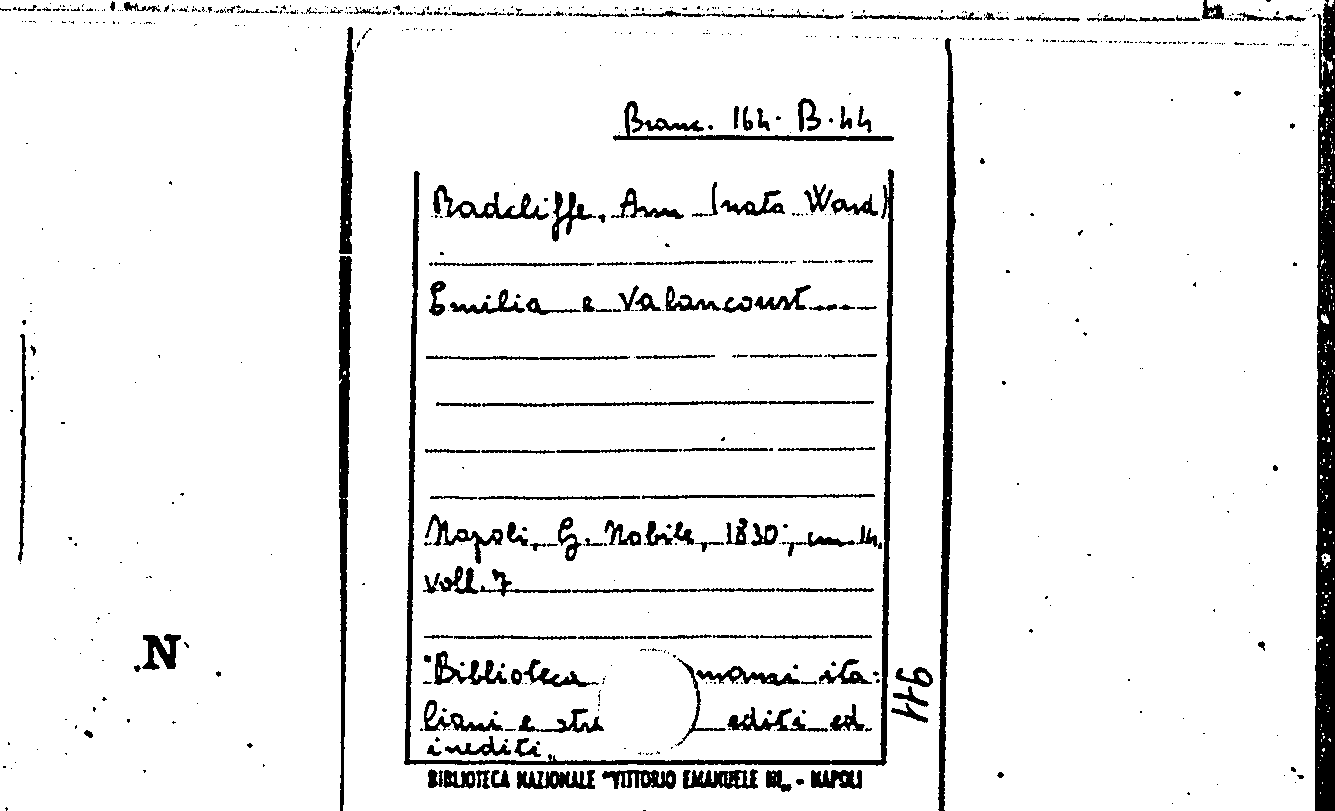 Branc. 164. B.44
Radcliffe, Ann (nata Ward)
Emilia e Valancourt...
Napoli, G. Nobile, 1830; cm 14.
voll. 7
"Biblioteca manzi ita-
liani e stra editi ed
inediti„
BIBLIOTECA NAZIONALE "VITTORIO EMANUELE III„ - NAPOLI
N